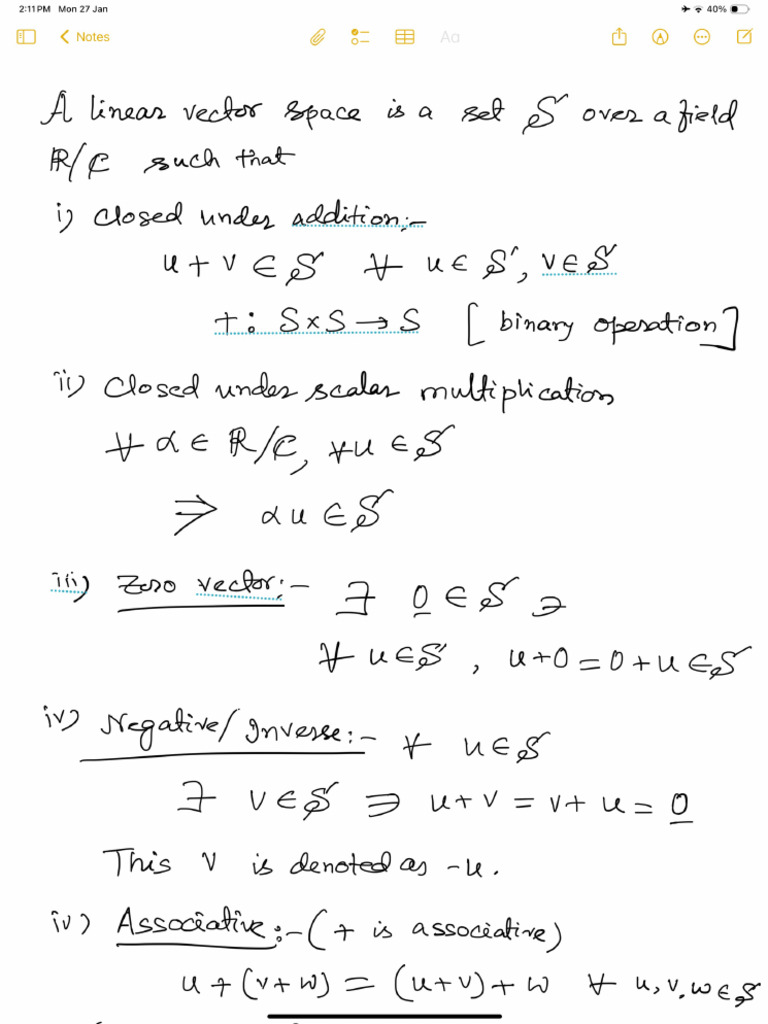 2:11 PM Mon 27 Jan 40%
Notes Aa
A linear vector space is a set S over a field
ℝ/ℂ such that
i) Closed under addition:-
u + v ∈ S ∀ u ∈ S, v ∈ S
+: S×S → S [binary operation]
ii) Closed under scalar multiplication
∀ α ∈ ℝ/ℂ, ∀u ∈ S
⇒ αu ∈ S
iii) Zero vector:- ∃ 0 ∈ S ∋
∀ u ∈ S, u+0 = 0+u ∈ S
iv) Negative/Inverse:- ∀ u ∈ S
∃ v ∈ S ∋ u+v = v+u = 0
This v is denoted as -u.
iv) Associative:- (+ is associative)
u + (v+w) = (u+v) + w ∀ u, v, w ∈ S